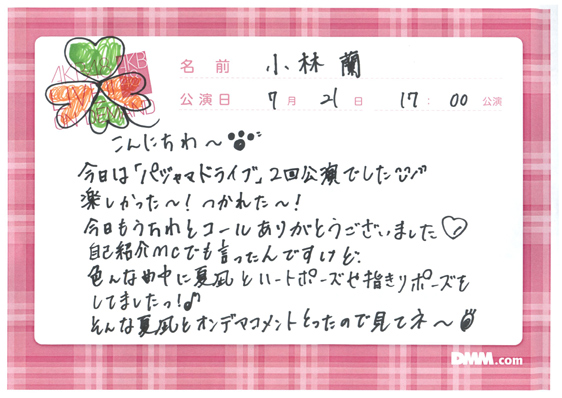 名前 小林 蘭
公演日 7月 21日 17:00 公演
こんにちわ〜
今日は「パジャマドライブ」2回公演でした
楽しかった〜!つかれた〜!
今日もうちわとコールありがとうございました♡
自己紹介MCでも言ったんですけど、
色んな曲中に夏凪とハートポーズや指きりポーズを
してましたっ!♪
そんな夏凪とオンデマコメントとったので見てネ〜
DMM.com